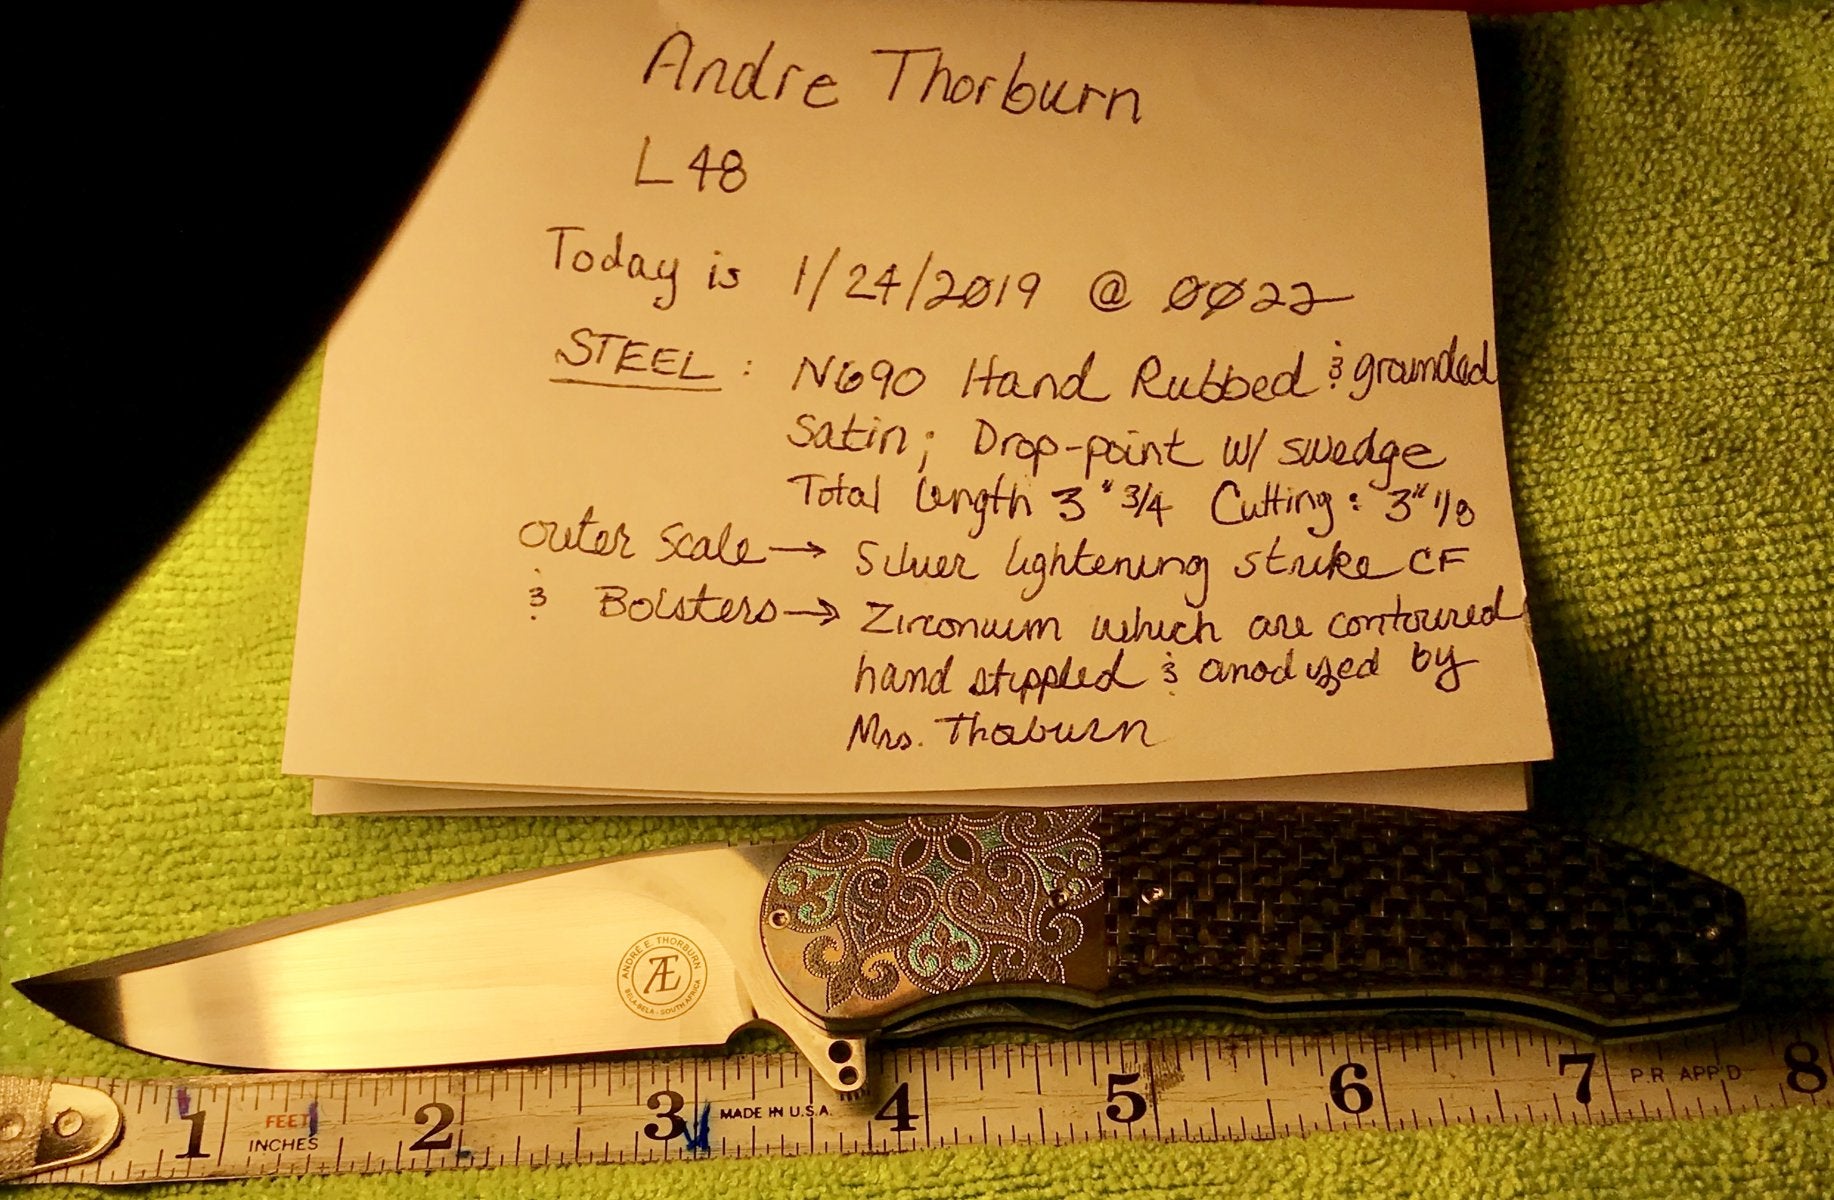 Andre Thorburn
L48
Today is 1/24/2019 @ 0022
STEEL : N690 Hand Rubbed & grounded
Satin; Drop-point w/ swedge
Total length 3" 3/4 Cutting: 3" 1/8
outer scale → Silver lightening strike CF
& Bolsters → Zirconium which are contoured
hand stippled & anodyzed by
Mrs. Thoburn
ANDRÉ E. THORBURN
Æ
BELA-BELA - SOUTH AFRICA
1 2 3 4 5 6 7 8
FEET
INCHES
MADE IN U.S.A.
P.R. APP'D